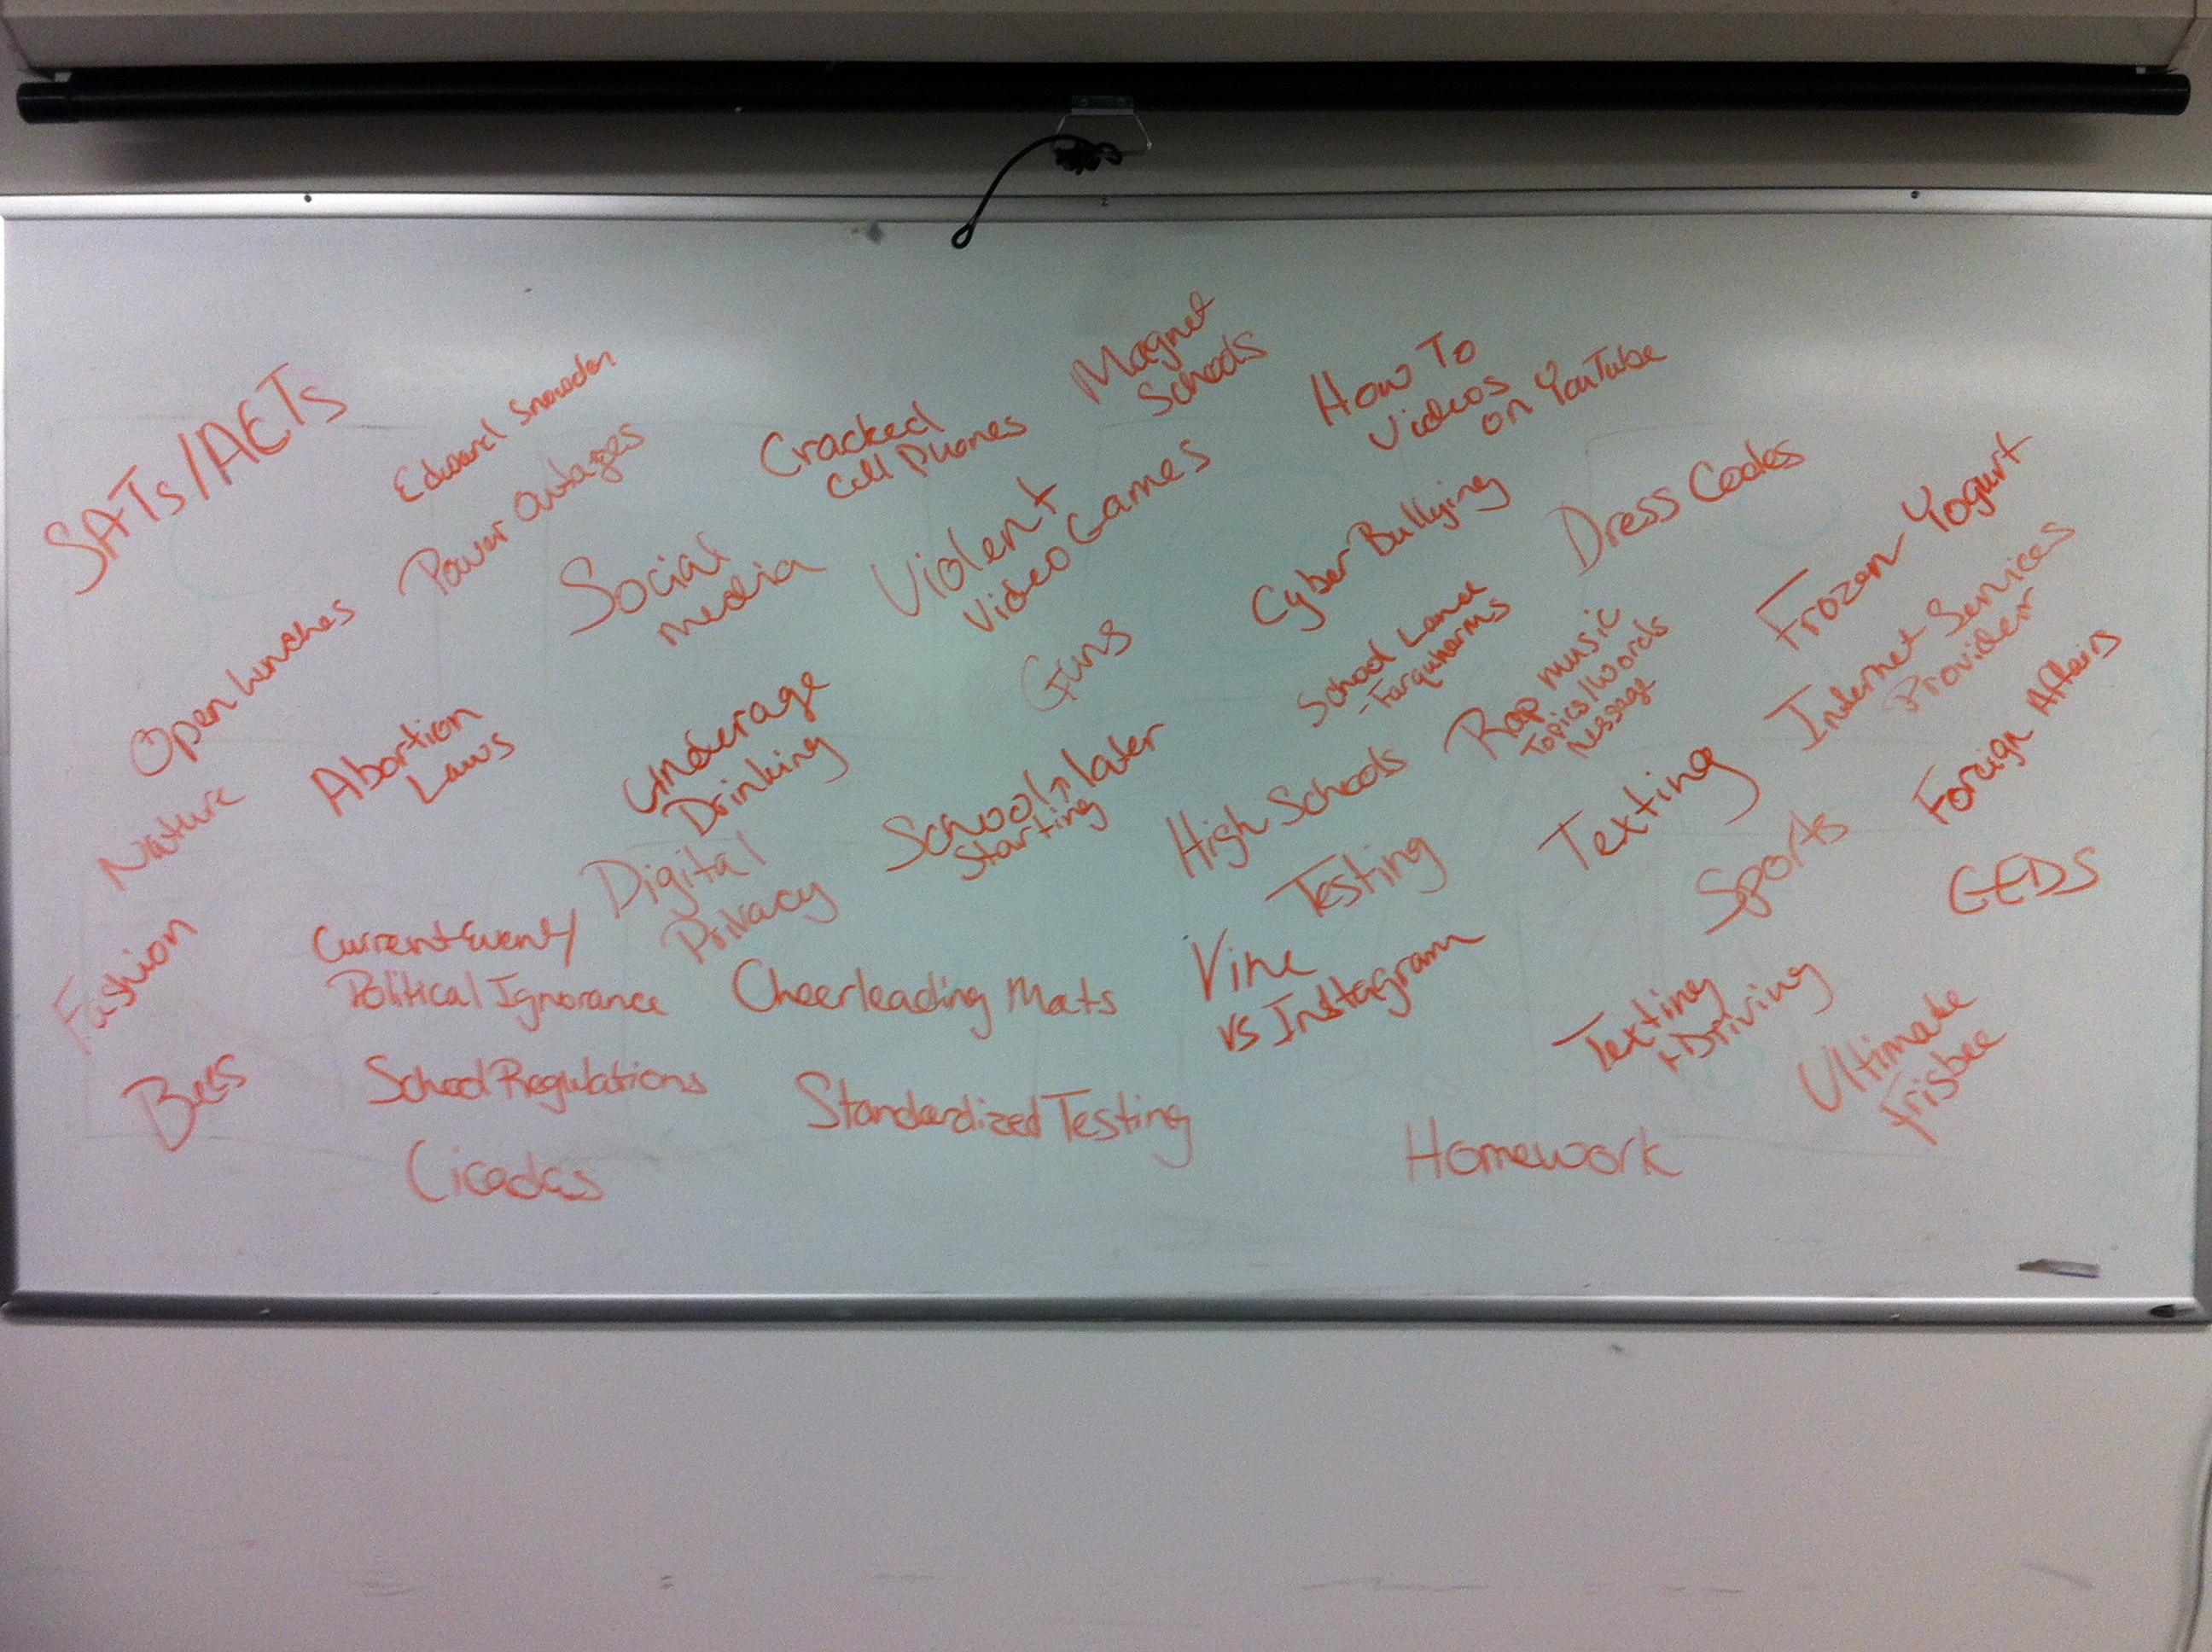 SATs/ACTs
Edward Snowden
Power Outages
Cracked
Cell Phones
Magnet
Schools
How To
Videos
on YouTube
Social
media
Violent
Video Games
Cyber Bullying
Dress Codes
Frozen Yogurt
Open lunches
Abortion
Laws
Underage
Drinking
Guns
School Lance
Rap music
Topics/Words
Message
Internet Services
Provider
Foreign Affairs
Nature
Digital
Privacy
School later
starting
High Schools
Testing
Texting
Sports
GEDS
Fashion
Current Events/
Political Ignorance
Cheerleading Mats
Vine
vs Instagram
Texting
+ Driving
Ultimate
Frisbee
Bees
School Regulations
Standardized Testing
Homework
Cicadas